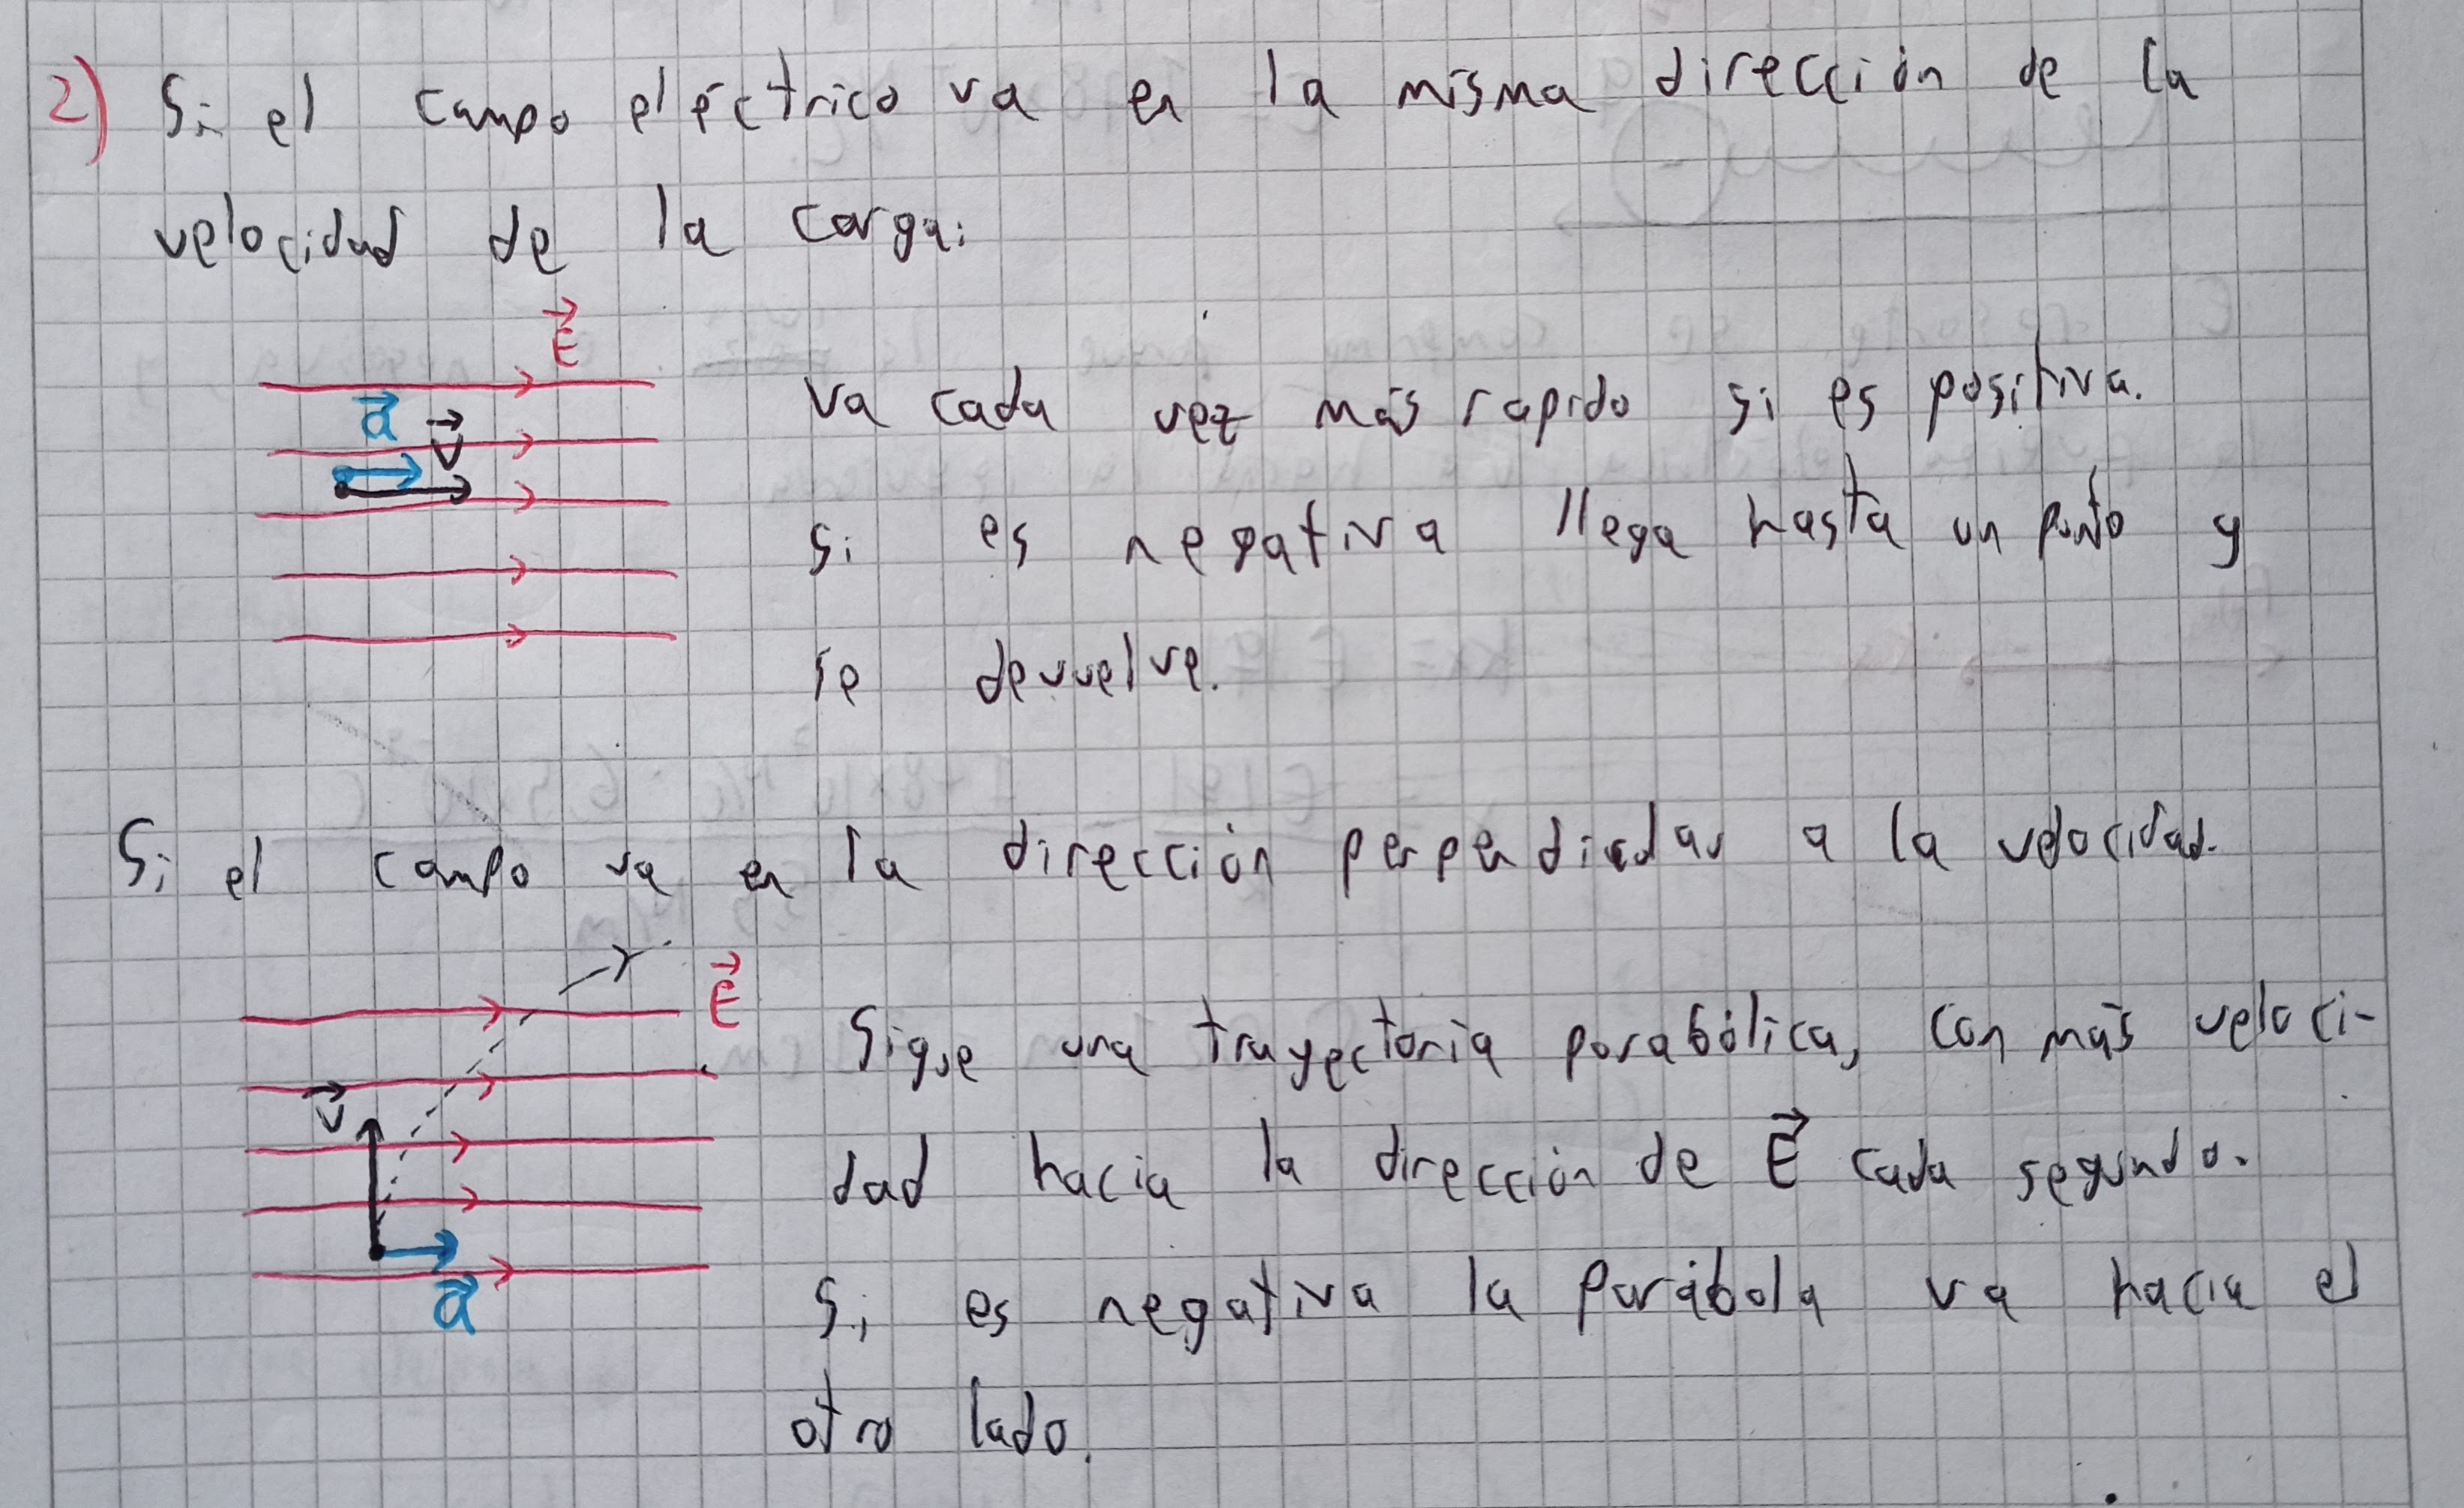 2) Si el campo eléctrico va en la misma dirección de la
velocidad de la carga:
E
a
v
Va cada vez más rapido si es positiva.
Si es negativa llega hasta un punto y
se devuelve.
Si el campo va en la dirección perpendicular a la velocidad.
E
v
a
Sigue una trayectoria parabólica, con más veloci-
dad hacia la dirección de E cada segundo.
Si es negativa la parábola va hacia el
otro lado.